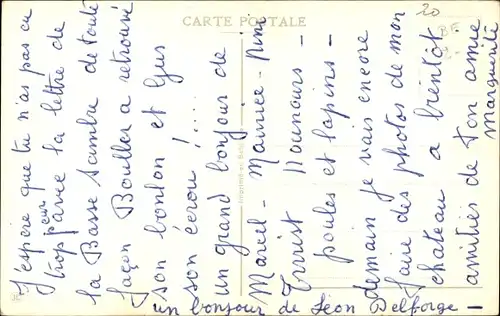 CARTE POSTALE
20
J'espère que tu n'as pas eu
trop peur avec la lettre de
la Basse Sambre de toute
façon Bouller a retrouvé
son boulon et Gus
son écrou !....
un grand bonjour de
Marcel - Maurice - Mimi
Nounours -
poules et lapins -
demain je vais encore
faire des photos de mon
chateau a bientôt
amitiés de ton amie
Marguerite
un bonjour de Léon Delforge -